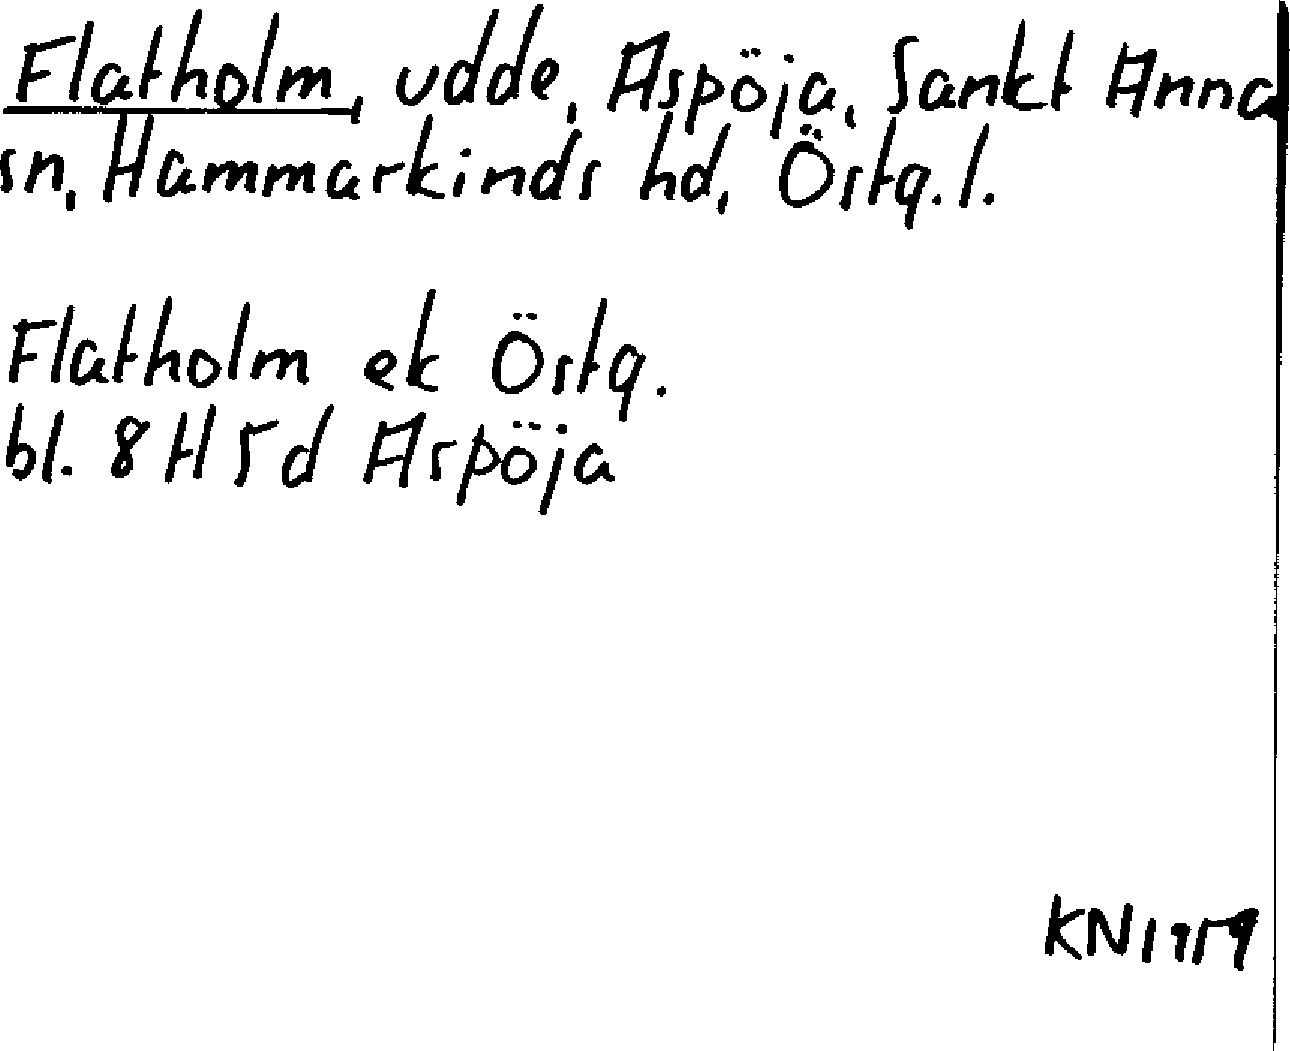 Flatholm, udde, Aspöja, Sankt Anna
sn, Hammarkinds hd, Östg. l.
Flatholm ek Östg.
bl. 8 H 5 d Aspöja
KN 1959